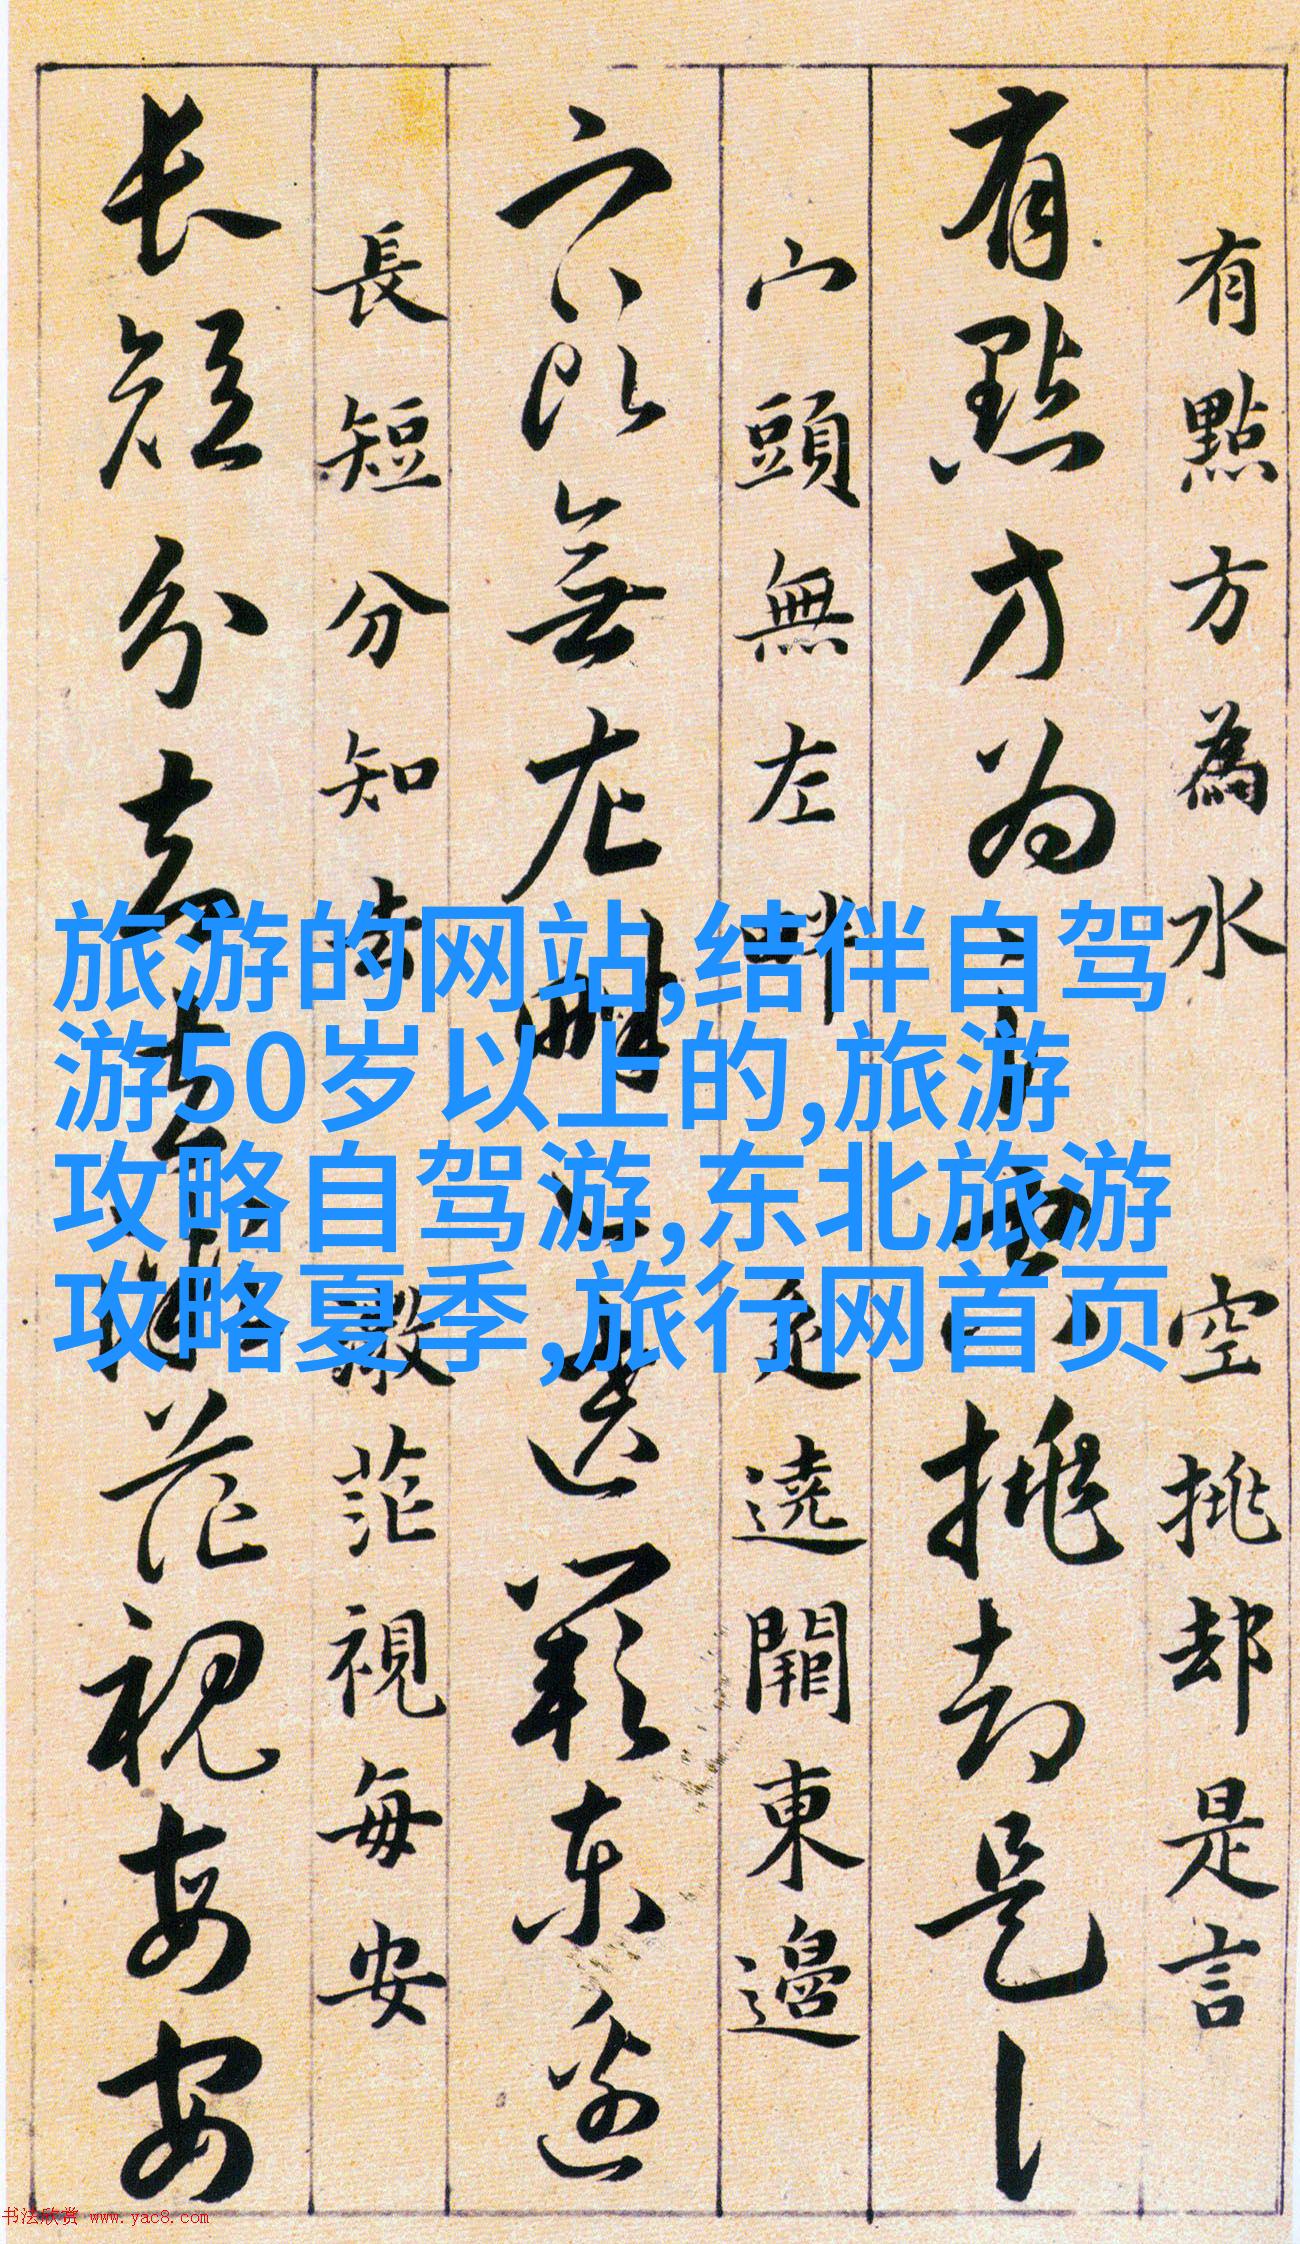 有點方為水 空挑却是言
有點方为 挑却是
宀頭無左畔 遶闌東邊
無左 東邊
長短分知去 微茫視每安
长短分去 茫視每安
旅游的网站,结伴自驾
游50岁以上的,旅游
攻略自驾游,东北旅游
攻略夏季,旅行网首页
书法欣赏 www.yac8.com